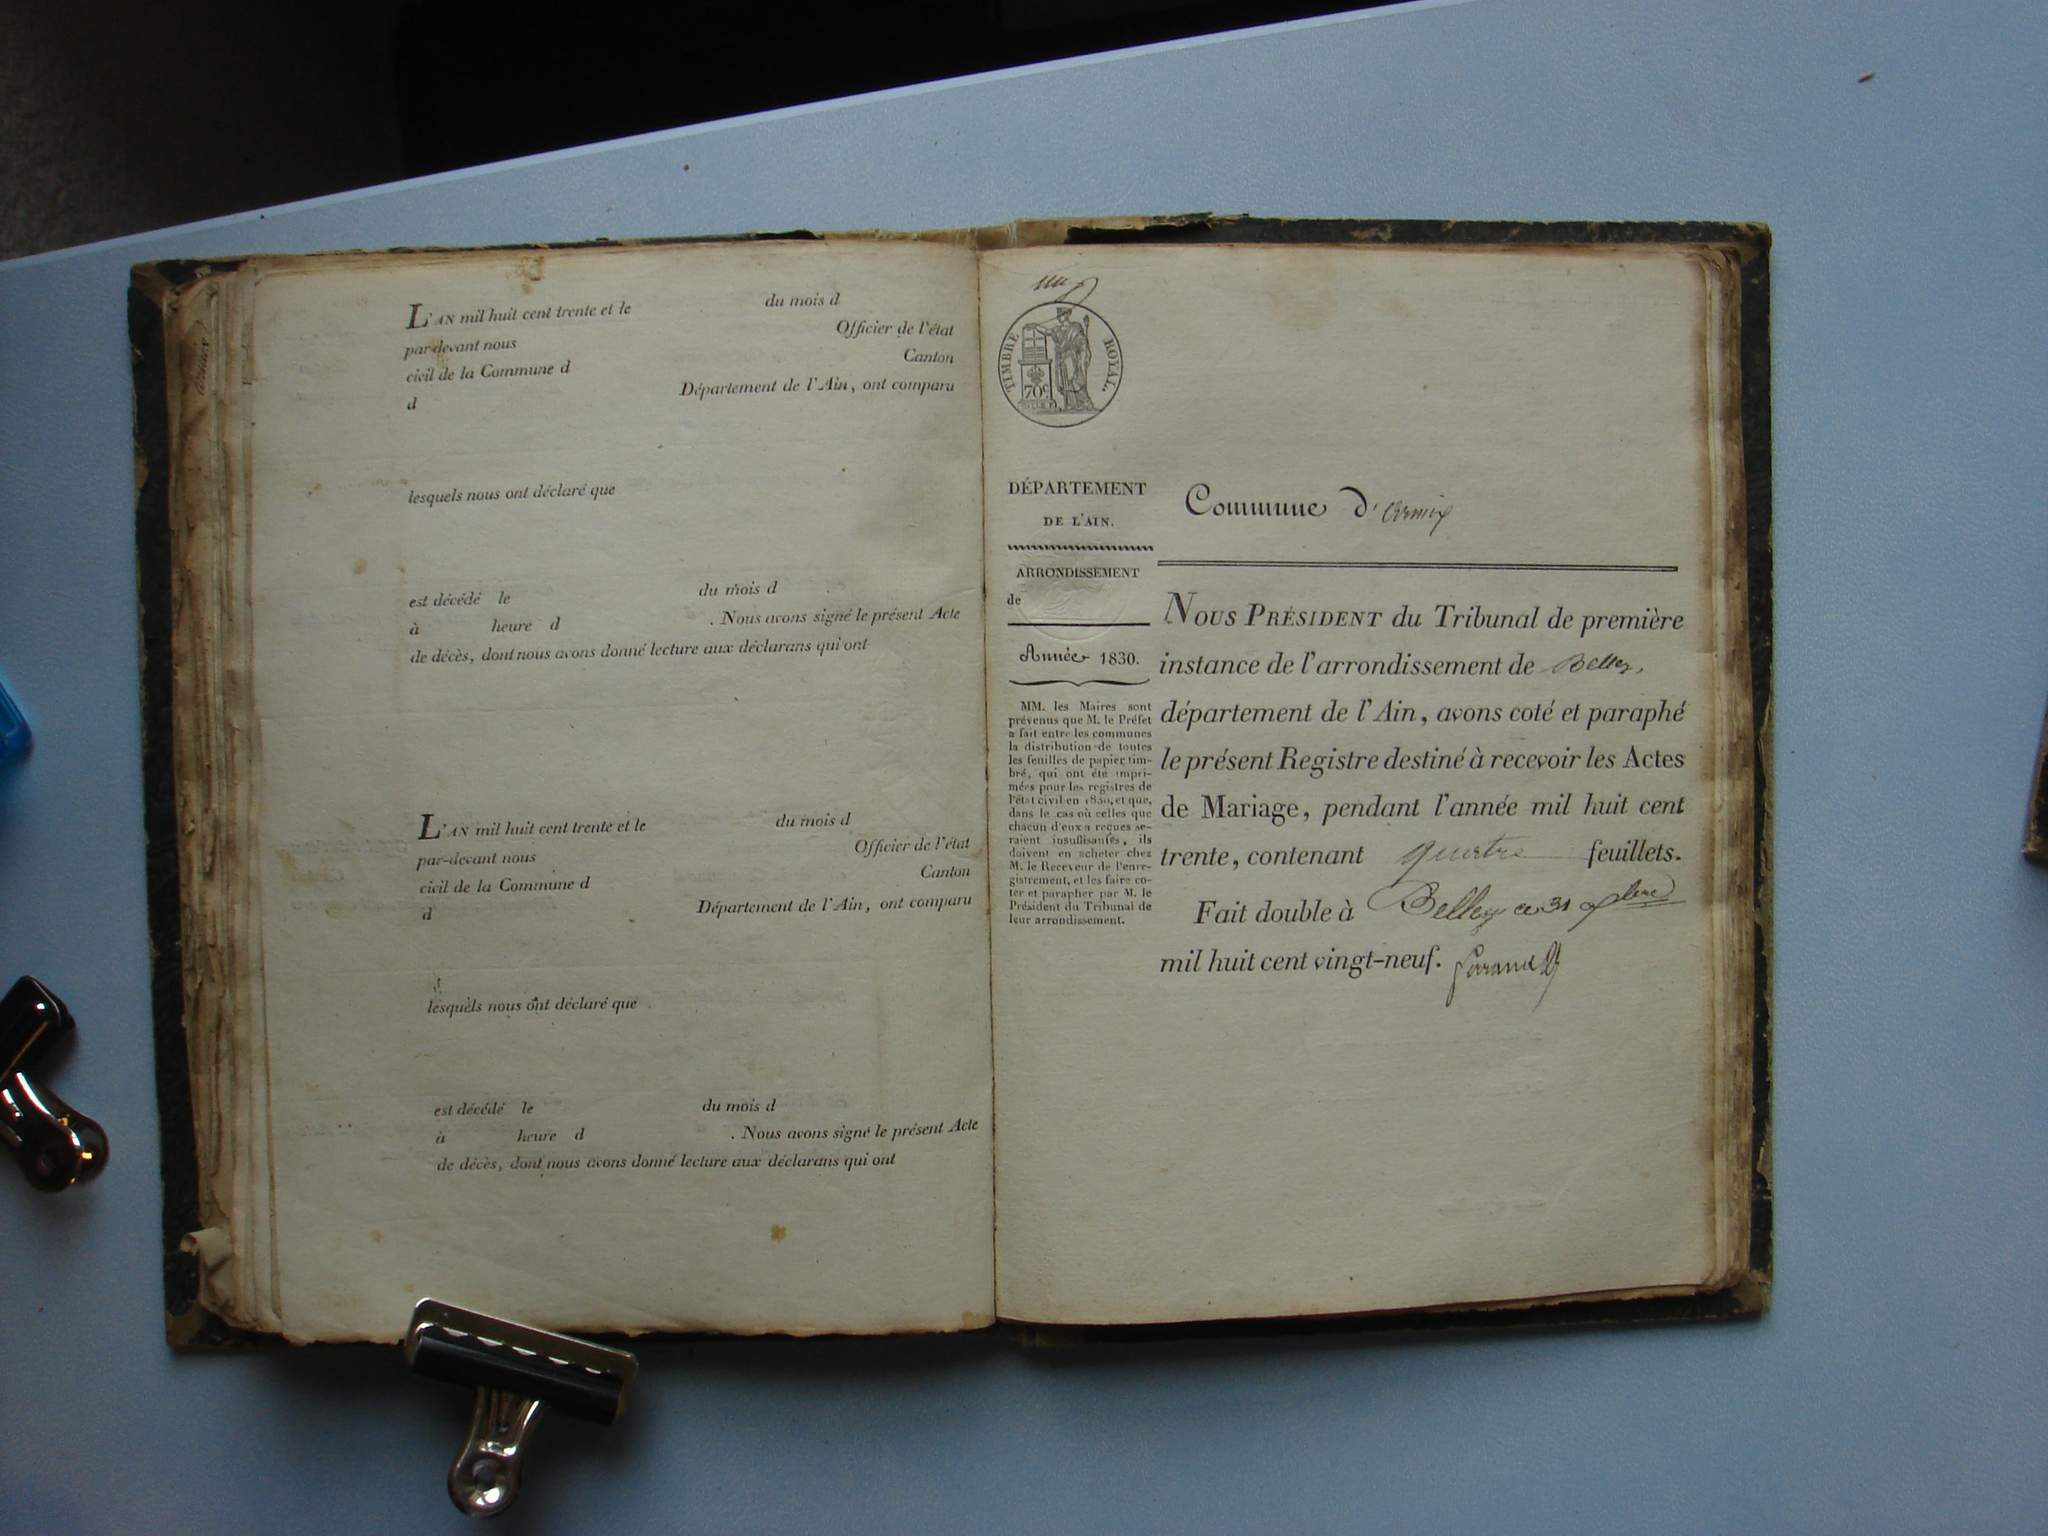 L'AN mil huit cent trente et le du mois d
par-devant nous Officier de l'état
civil de la Commune d Canton
d Département de l'Ain, ont comparu
lesquels nous ont déclaré que
est décédé le du mois d
à heure d . Nous avons signé le présent Acte
de décès, dont nous avons donné lecture aux déclarans qui ont
L'AN mil huit cent trente et le du mois d
par-devant nous Officier de l'état
civil de la Commune d Canton
d Département de l'Ain, ont comparu
lesquels nous ont déclaré que
est décédé le du mois d
à heure d . Nous avons signé le présent Acte
de décès, dont nous avons donné lecture aux déclarans qui ont
TIMBRE ROYAL.
70c
DÉPARTEMENT
DE L'AIN.
ARRONDISSEMENT
de
Année 1830.
MM. les Maires sont
prévenus que M. le Préfet
a fait entre les communes
la distribution de toutes
les feuilles de papier tim-
bré, qui ont été impri-
mées pour les registres de
l'état civil en 1830, et que,
dans le cas où celles que
chacun d'eux a reçues se-
raient insuffisantes, ils
doivent en acheter chez
M. le Receveur de l'enre-
gistrement, et les faire co-
ter et parapher par M. le
Président du Tribunal de
leur arrondissement.
Commune d'armix
NOUS PRÉSIDENT du Tribunal de première
instance de l'arrondissement de Belley,
département de l'Ain, avons coté et paraphé
le présent Registre destiné à recevoir les Actes
de Mariage, pendant l'année mil huit cent
trente, contenant quatre feuillets.
Fait double à Belley ce 31
mil huit cent vingt-neuf.